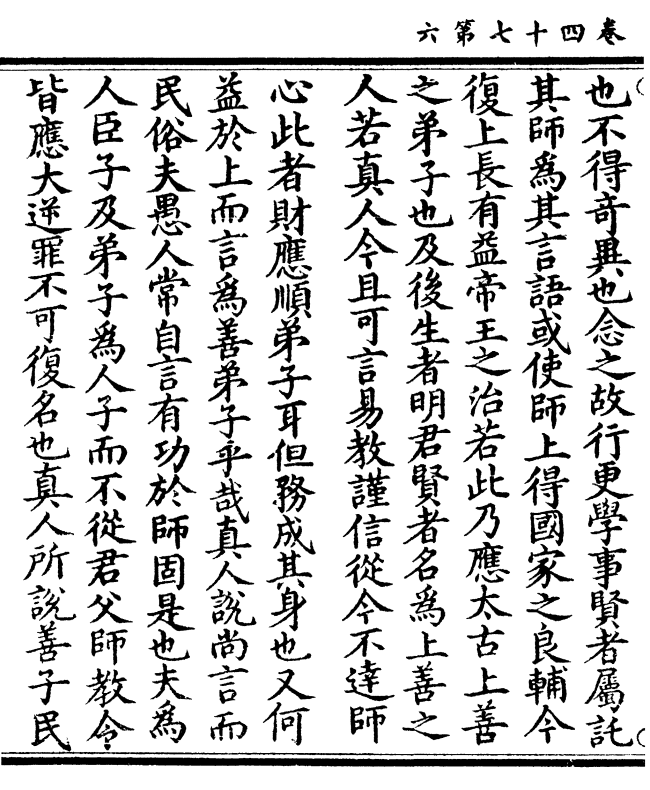 卷四十七第六
也不得奇異也念之故行更學事賢者屬託
其師爲其言語或使師上得國家之良輔今
復上長有益帝王之治若此乃應太古上善
之弟子也及後生者明君賢者名爲上善之
人若真人今且可言易教謹信從今不達師
心此者財應順弟子耳但務成其身也又何
益於上而言爲善弟子乎哉真人說尚言而
民俗夫愚人常自言有功於師固是也夫爲
人臣子及弟子爲人子而不從君父師教令
皆應大逆罪不可復名也真人所說善子民